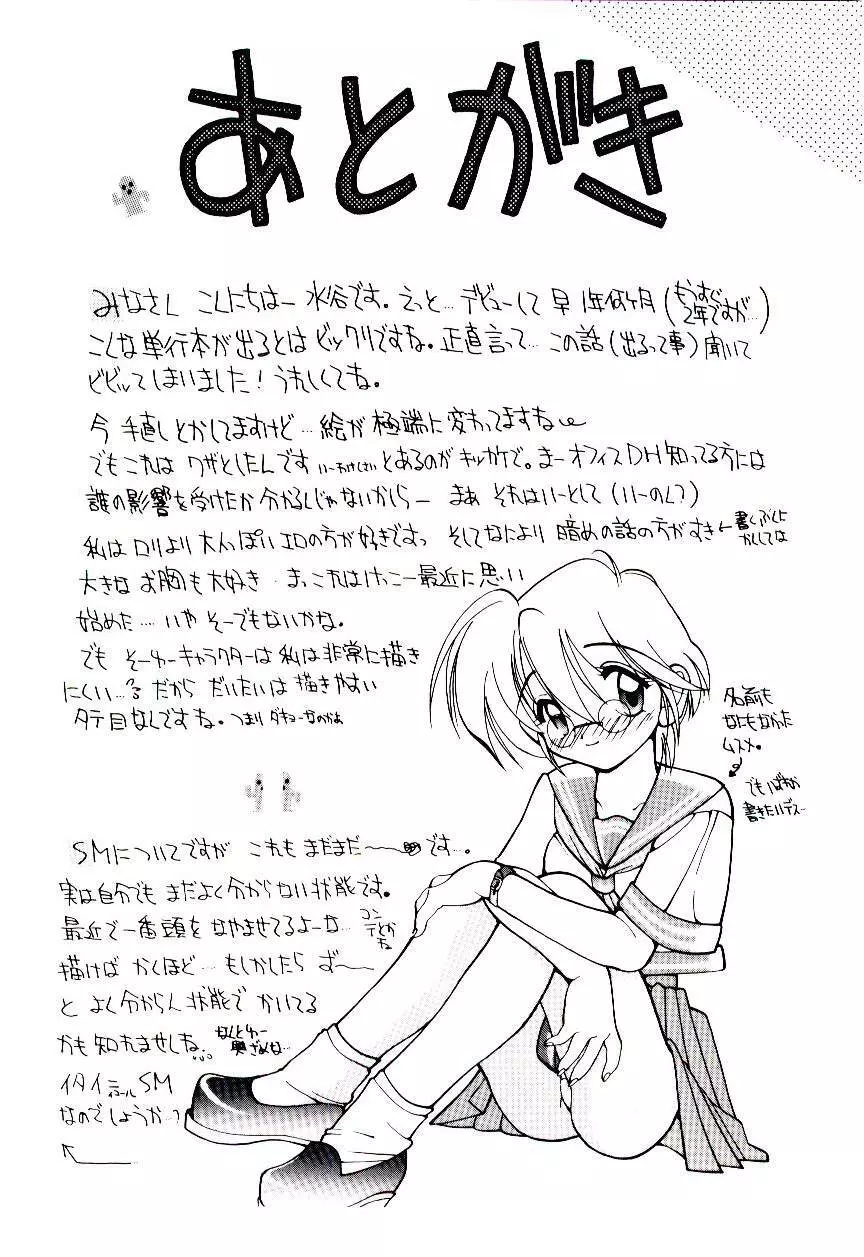 あとがき
みなさん こんにちはー 水谷です。えっと…デビューして 早1年何ヶ月(もうすぐ2年ですが…)
こんな単行本が出るとは ビックリですね。正直言って… この話(出るって事)聞いて
ビビッてしまいました!うれしくてね。
今 手直しとかしてますけど…絵が 極端に変わってますね
でもこれは ワザとしたんです とあるのがキッカケで。まーオフィスDH知ってる方には
誰の影響を受けたか分かるんじゃないかしらー まぁ それはいーとして(いーのん?)
私は ロリより 大人っぽいエロの方が好きですっ そしてなにより 暗めの話の方がすき
←書くぶんに かんしてはな
大きな お胸も 大好き まっこれはけっこー最近に思い
始めた…いや そーでもないかな。
でも そーゆーキャラクターは 私は非常に描き
にくい…?る だから だいたいは 描きやすい
タテ目なんですね。つまり ダキョーなのかぁ
名前も
なにもなかった
ムスメ。
でも いずれか
書きたいデスー
SMについてですが これも まだまだ〜です。
実は自分でも まだよく分からない状態です。
最近で一番頭を なやませてるよーな… コンテとかな
描けば かくほど… もしかしたら ず〜っ
と よく分からん状態で かいてる
かも知れませんね。なんとゆー 奥ぶかな…
イタイ SM
なのでしょうか…?